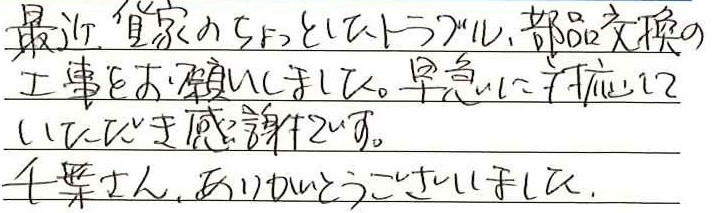 最近、貸家のちょっとしたトラブル、部品交換の
工事をお願いしました。早急に対応して
いただき感謝です。
千葉さん、ありがとうございました。